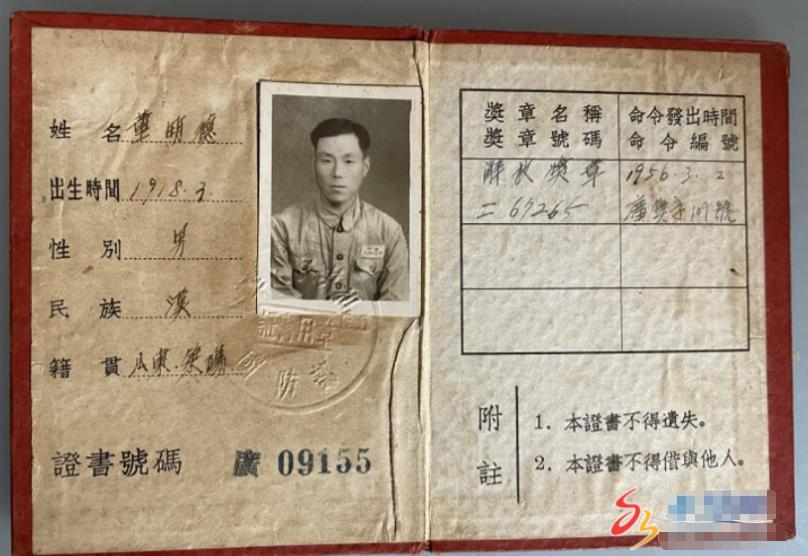 姓 名 華明德
出生時間 1918.3.
性 別 男
民 族 漢
籍 貫 山東.榮
證書號碼 廣 09155
獎章名稱 命令發出時間
獎章號碼 命令編號
解放獎章 1956.3.2
二67265 廣獎字109號
附註
1. 本證書不得遺失。
2. 本證書不得借與他人。